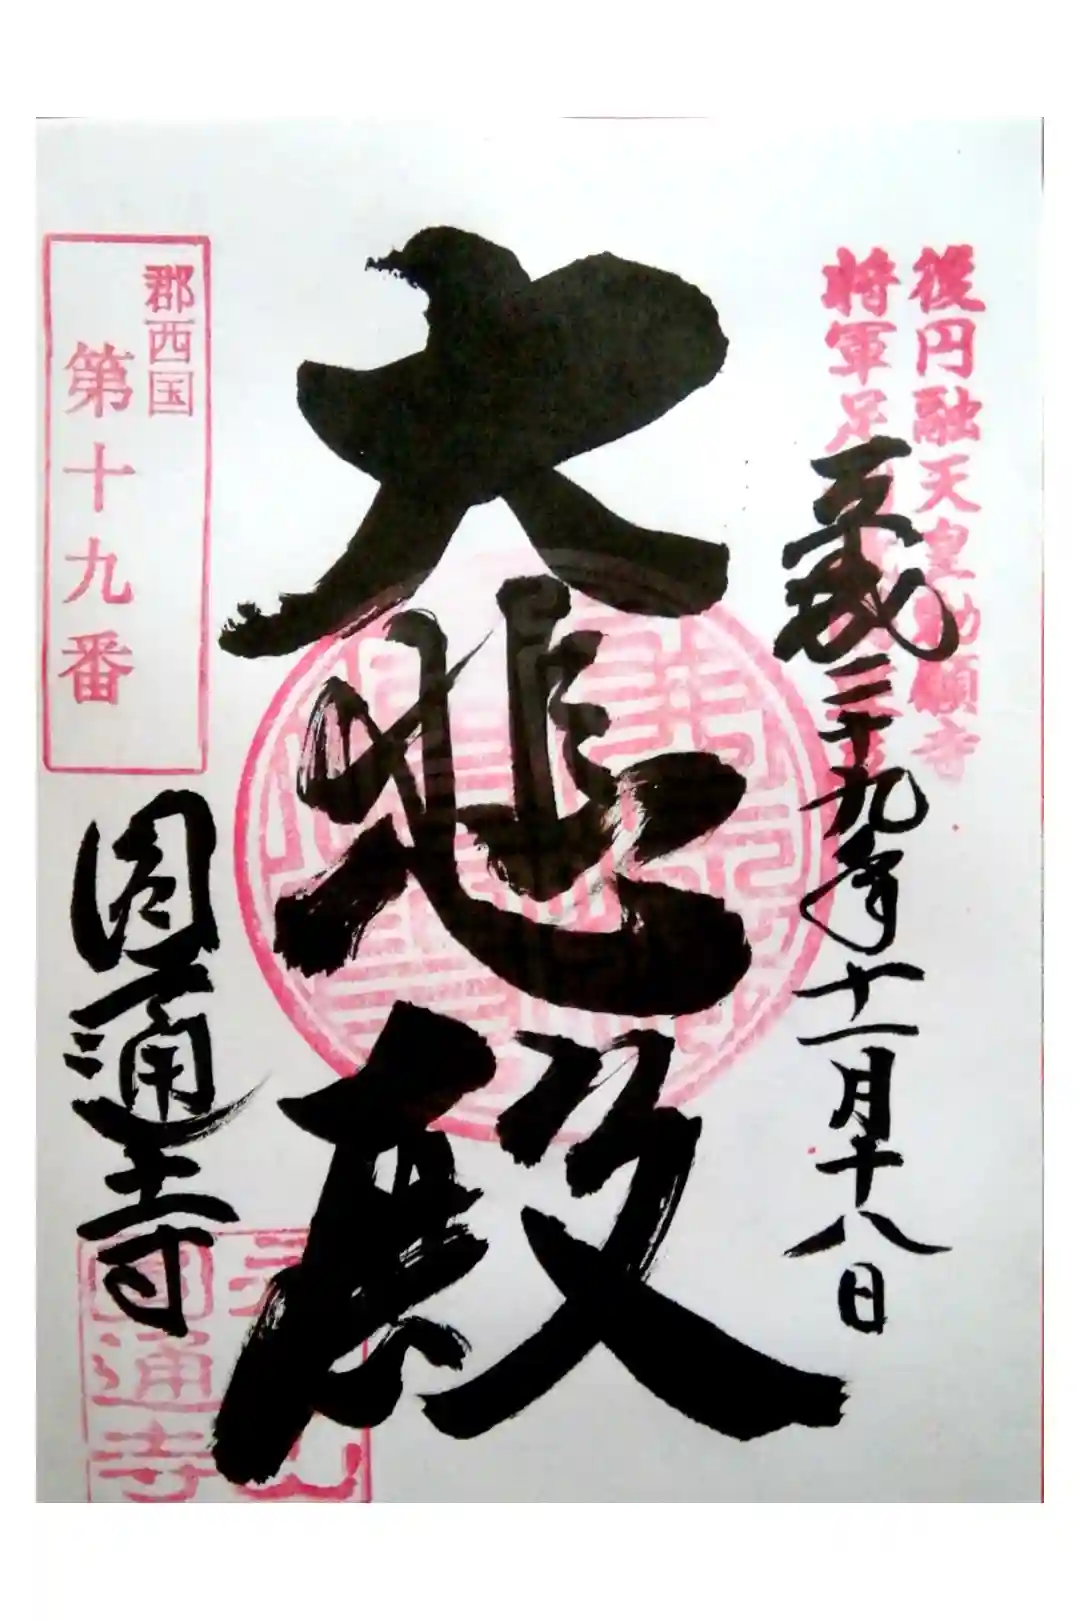 後円融天皇勅願寺
将軍足
平成二十九年十一月十八日
大悲殿
郡西国
第十九番
圓通寺
圓通寺